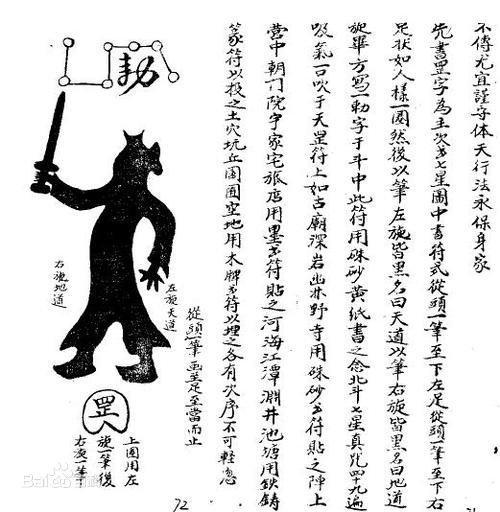 不傳尤宜謹守体天行法永保身家
先書罡字為主次書七星圖中書符式從頭一筆至下左足從頭一筆至下右
足狀如人樣一圈然後以筆左旋皆黑名曰天道以筆右旋皆黑名曰地道
旋畢方寫一勅字于斗中此符用硃砂黃紙書之念北斗七星真咒四十九遍
吸氣一口吹于天罡符上如古廟深岩幽林野寺用硃砂書符貼之陣上
營中朝門院宇家宅旅店用墨書符貼之河海江潭淵井池塘用鉄鑄
篆符以投之土穴坑丘園囿空地用木牌書符以埋之各有次序不可輕忽
從頭一筆画至足至當而止
勅
左旋天道
右旋地道
罡
上圈用左
旋一筆後
右旋一筆
72
Bai百科